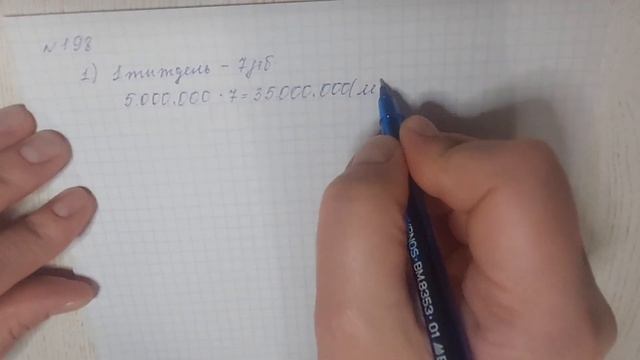 №198
1) 1тиждень - 7діб
5.000.000 · 7 = 35000.000(м
HYPNOS · BM.8353 · 01